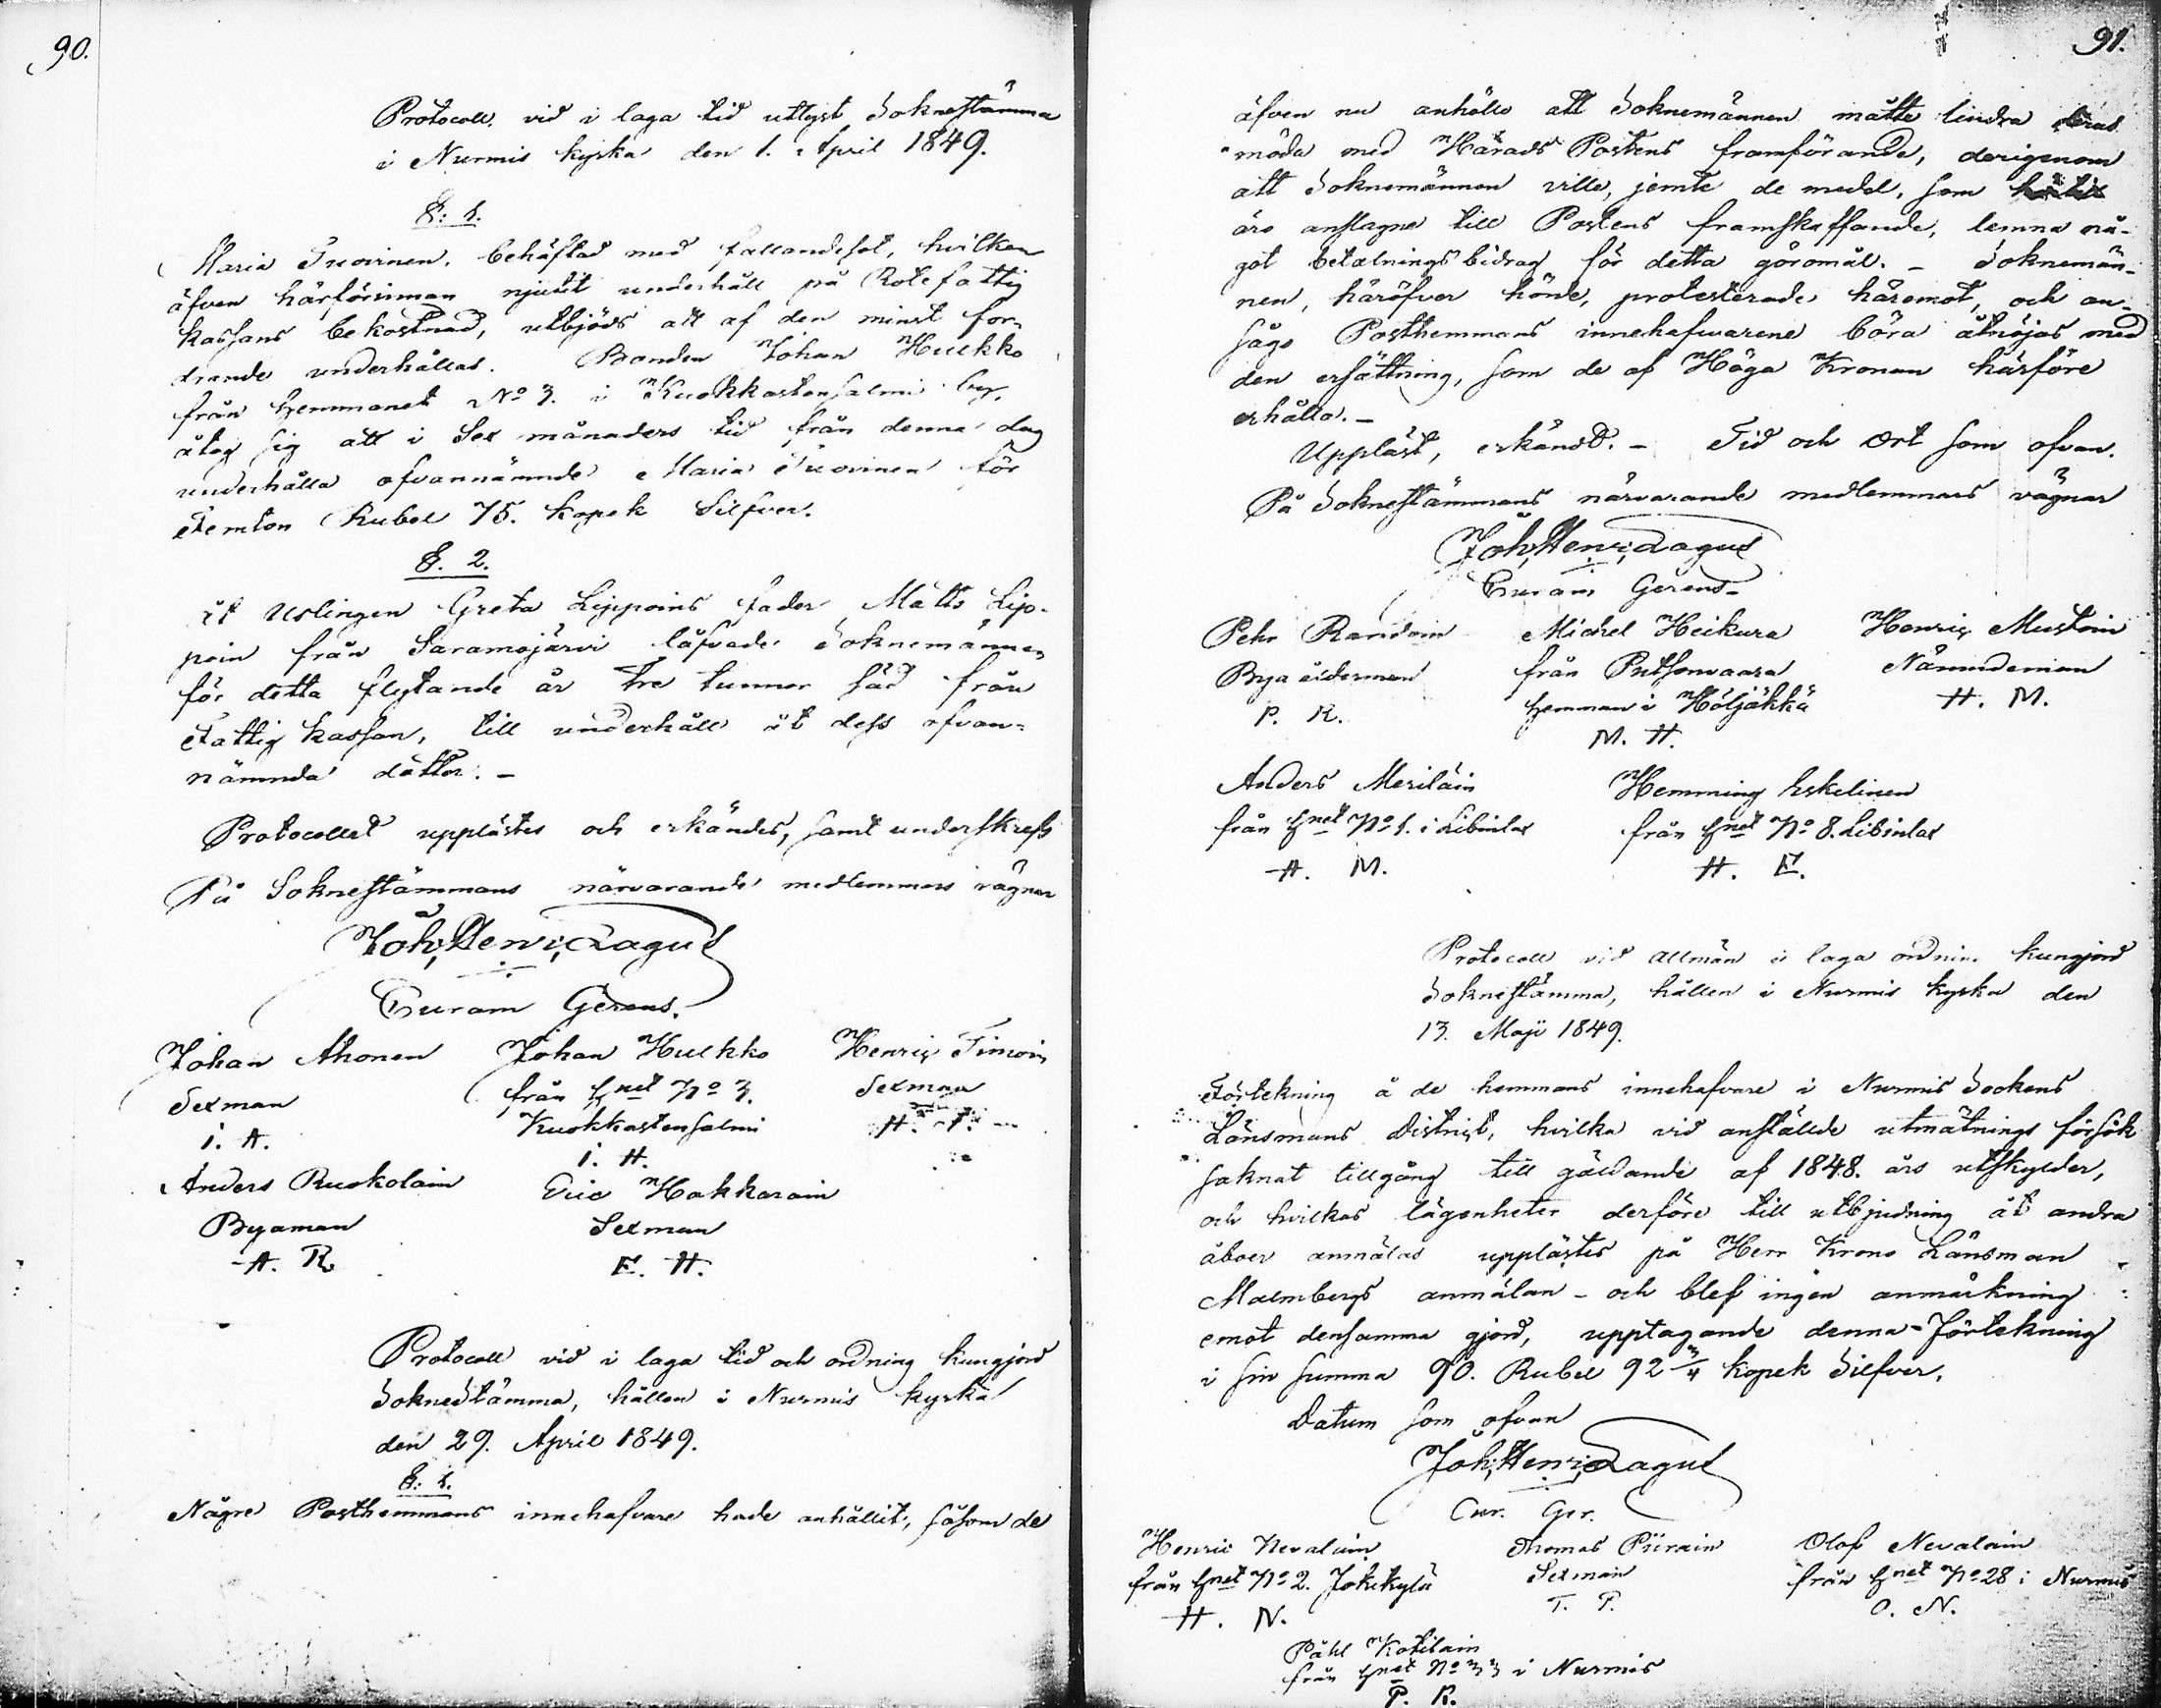 90.
Protocoll vid i laga tid utlyst Soknestämma
i Nurmis kyrka den 1. April 1849.
§: 1.
Maria Tuovinen, behäftad med fallandesot, hvilken
äfven härförinnan njutit underhåll på Rotefattig
kassans bekostnad, utbjöds att af den minst for-
drande underhållas. Bonden Johan Hulkko
från hemmanet No 3. i Kuokkastensalmi by,
åtog sig att i Sex månaders tid från denna dag
underhålla ofvannämnde Maria Tuovinen för
Femton Rubel 75. kopek Silfver.
§. 2.
åt Uslingen Greta Lippoins fader Matts Lip-
poin från Saramojärvi låfvade Soknemännen
för detta flytande år tre tunnor säd från
Fattig kassan, till underhåll åt dess ofvan-
nämnda dotter. -
Protocollet upplästes och erkändes, samt underskrefs
På Soknestämmans närvarande medlemmars vägnar
Joh; Henr; Lagus
Curam Gerens.
Johan Ahonen Johan Hulkko Henric Timoin
Sexman från hnet No 3. Sexman
Kuokkastensalmi H. T.
I. A. I. H.
Anders Ruokolain Eric Hakkarain
Byaman Sexman
A. R. E. H.
Protocoll vid i laga tid och ordning kungjord
Soknestämma, hållen i Nurmis kyrka
den 29. April 1849.
§: 1.
Någre Posthemmans innehafvare hade anhållit, såsom de
91.
äfven nu anhålla att Soknemännen måtte lindra deras
möda med Härads Postens framförande, derigenom
att Soknemännen ville, jemte de medel, som
äro anslagne till Postens framskaffande, lemna nå-
got betalningsbidrag för detta göromål. - Soknemän-
nen, häröfver hörde, protesterade häremot, och an-
sågo Posthemmans innehafvarene böra åtnöjas med
den ersättning, som de af Höga Kronan härföre
erhålla. -
Uppläst, erkändt. - Tid och Ort som ofvan.
På Soknestämmans närvarande medlemmars vägnar
Joh; Henr; Lagus
Curam Gerens
Pehr Randoin Michel Heikura Henric Mustoin
Bya åldermen från Putsonvaara Nämndeman
P. R. hemman i Höljäkkä H. M.
M. H.
Anders Meriläin Hemming Eskelinen
från hnet No 1. i Libinlax från hnet No 8. Libinlax
A. M. H. E.
Protocoll vid allmän i laga ordning kungjord
Soknestämma, hållen i Nurmis kyrka den
13. Maji 1849.
Förtekning å de hemmans innehafvare i Nurmis Sockens
Länsmans District, hvilka vid anställde utmätnings försök
saknat tillgång till gäldande af 1848. års utskylder,
och hvilkas lägenheter derföre till utbjudning åt andra
åboer anmälas upplästes på Herr Krono Länsman
Malmbergs anmälan - och blef ingen anmärkning
emot densamma gjord, upptagande denna Förtekning
i sin summa 90. Rubel 92 3/4 kopek Silfver.
Datum som ofvan
Joh; Henr; Lagus
Cur. Ger.
Henric Nevalain Thomas Piirain Olof Nevalain
från hnet No 2. Jokikylä Sexman från hnet No 28 i Nurmis
H. N. T. P. O. N.
Påhl Kotilain
från hnet No 33 i Nurmis
P. K.